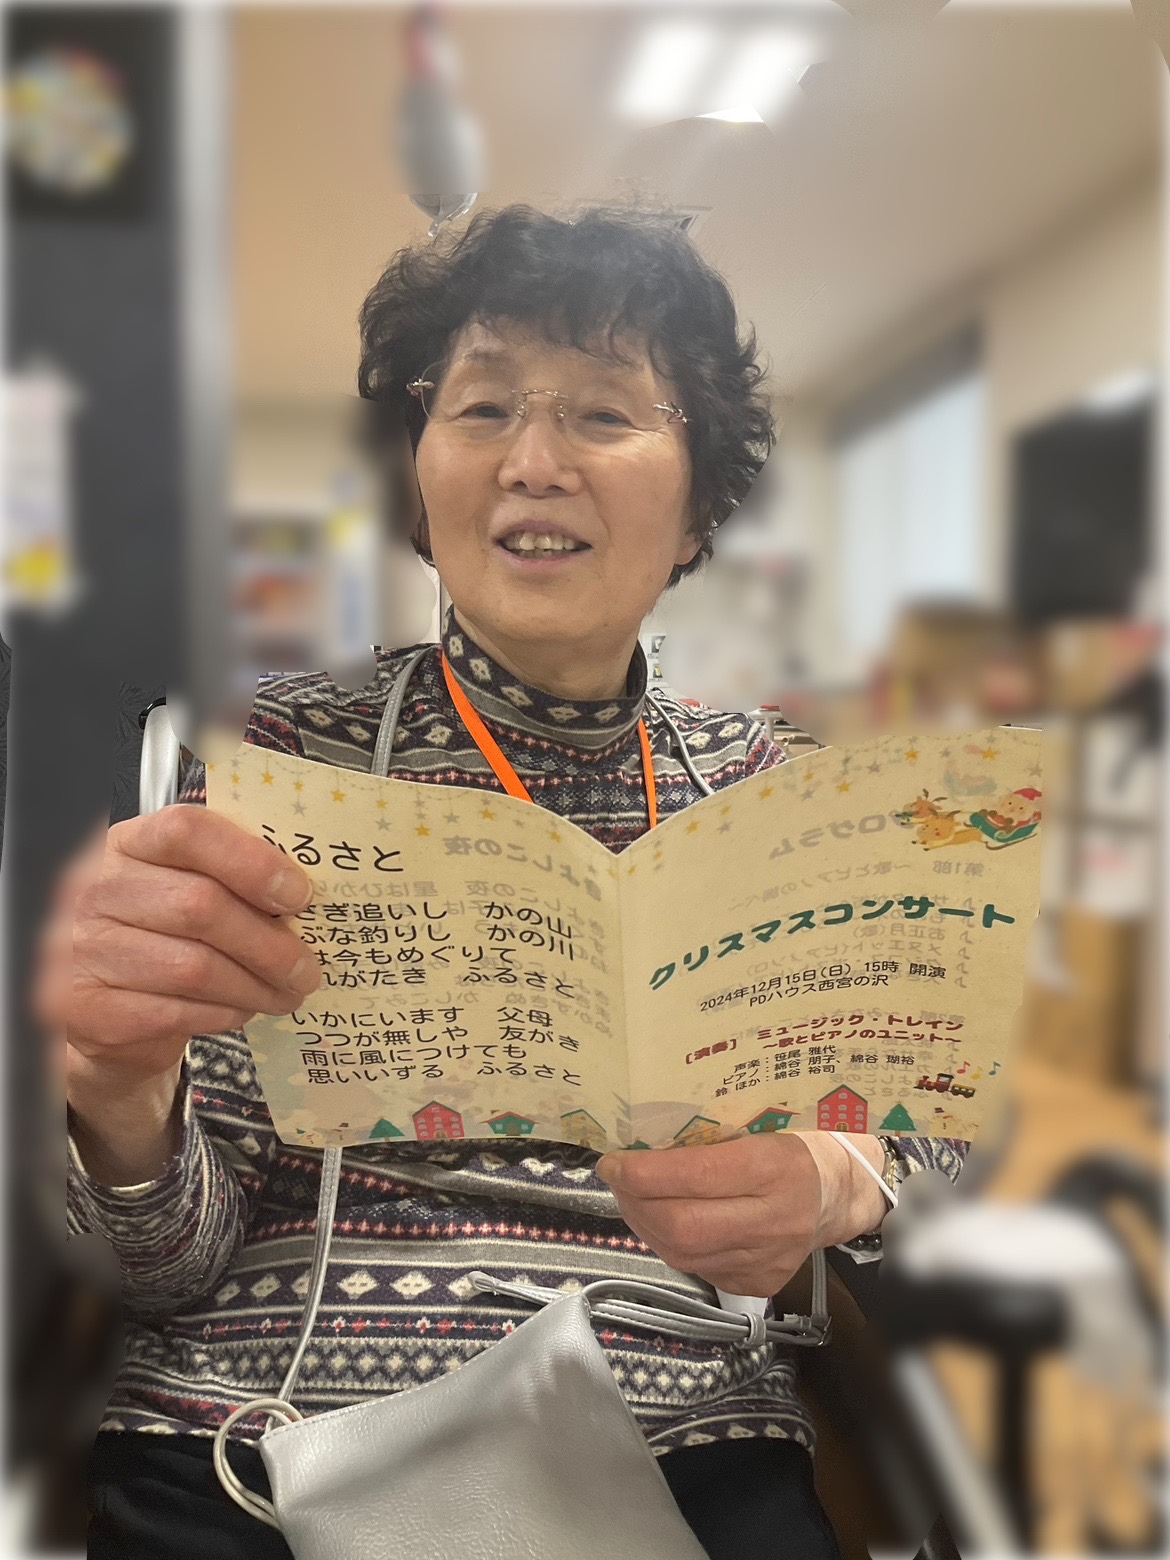 ふるさと
さぎ追いし　かの山
ぶな釣りし　かの川
は今もめぐりて
れがたき　ふるさと
いかにいます　父母
つつが無しや　友がき
雨に風につけても
思いいずる　ふるさと
クリスマスコンサート
2024年12月15日(日) 15時 開演
PDハウス西宮の沢
[演奏] ミュージック・トレイン
～歌とピアノのユニット～
声楽：笹尾 雅代
ピアノ：綿谷 朋子、綿谷 瑚裕
鈴 ほか：綿谷 裕司